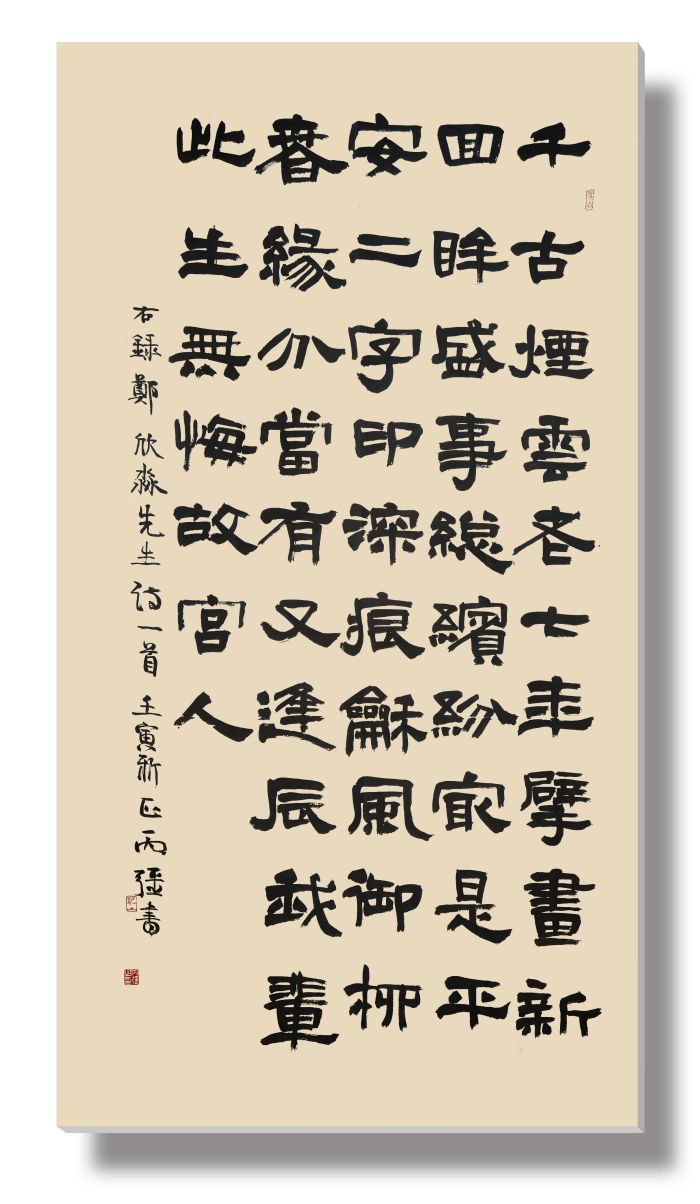 千古煙雲老七年擘畫新
囬眸盛事總繽紛冣是平
安二字印深痕龢風御柳
春緣分當有又逢辰我輩
此生無悔故宮人
右録鄭欣淼先生诗一首壬寅新正丙彊書